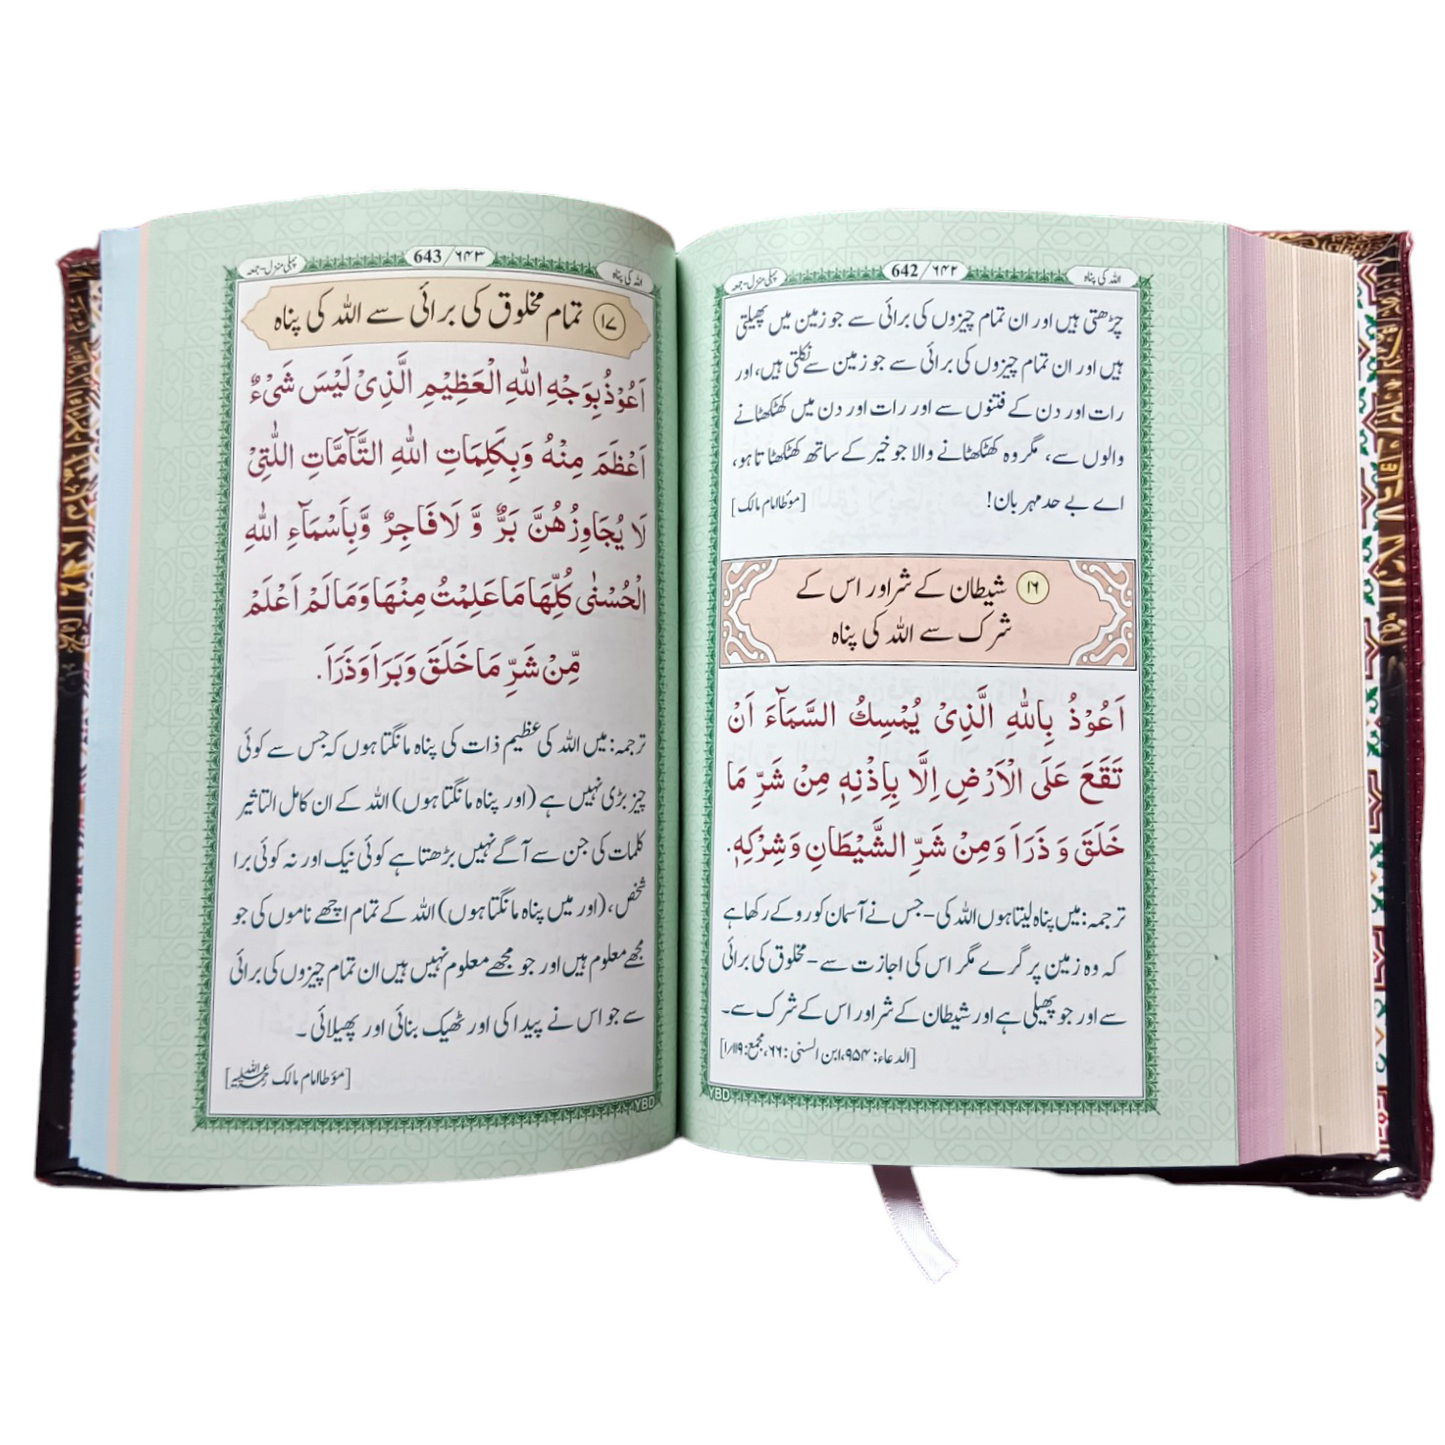 اللہ کی پناہ
642/۶۴۲
پہلی منزل-جمعہ
چڑھتی ہیں اور ان تمام چیزوں کی برائی سے جو زمین میں پھیلتی
ہیں اور ان تمام چیزوں کی برائی سے جو زمین سے نکلتی ہیں، اور
رات اور دن کے فتنوں سے اور رات اور دن میں کھٹکھٹانے
والوں سے، مگر وہ کھٹکھٹانے والا جو خیر کے ساتھ کھٹکھٹاتا ہو،
اے بے حد مہربان! [مؤطا امام مالک]
۱۶ شیطان کے شر اور اس کے
شرک سے اللہ کی پناہ
اَعُوْذُ بِاللهِ الَّذِیْ یُمْسِكُ السَّمَآءَ اَنْ
تَقَعَ عَلَی الْاَرْضِ اِلَّا بِاِذْنِهٖ مِنْ شَرِّ مَا
خَلَقَ وَ ذَرَاَ وَمِنْ شَرِّ الشَّیْطَانِ وَشِرْكِهٖ.
ترجمہ: میں پناہ لیتا ہوں اللہ کی- جس نے آسمان کو روکے رکھا ہے
کہ وہ زمین پر گرے مگر اس کی اجازت سے- مخلوق کی برائی
سے اور جو پھیلی ہے اور شیطان کے شر اور اس کے شرک سے۔
[الدعاء: ۹۵۴، ابن السنی: ۶۶، مجمع: ۱/۱۱۹]
YBD
اللہ کی پناہ
643/۶۴۳
پہلی منزل-جمعہ
۱۷ تمام مخلوق کی برائی سے اللہ کی پناہ
اَعُوْذُ بِوَجْهِ اللهِ الْعَظِیْمِ الَّذِیْ لَیْسَ شَیْءٌ
اَعْظَمَ مِنْهُ وَبِكَلِمَاتِ اللهِ التَّآمَّاتِ اللَّتِیْ
لَا یُجَاوِزُهُنَّ بَرٌّ وَّ لَا فَاجِرٌ وَّبِاَسْمَآءِ اللهِ
الْحُسْنٰی كُلِّهَا مَا عَلِمْتُ مِنْهَا وَمَا لَمْ اَعْلَمْ
مِّنْ شَرِّ مَا خَلَقَ وَبَرَاَ وَذَرَاَ.
ترجمہ: میں اللہ کی عظیم ذات کی پناہ مانگتا ہوں کہ جس سے کوئی
چیز بڑی نہیں ہے (اور پناہ مانگتا ہوں) اللہ کے ان کامل التاثیر
کلمات کی جن سے آگے نہیں بڑھتا ہے کوئی نیک اور نہ کوئی برا
شخص، (اور میں پناہ مانگتا ہوں) اللہ کے تمام اچھے ناموں کی جو
مجھے معلوم ہیں اور جو مجھے معلوم نہیں ہیں ان تمام چیزوں کی برائی
سے جو اس نے پیدا کی اور ٹھیک بنائی اور پھیلائی ۔
[مؤطا امام مالک رحمۃ اللہ علیہ]
YBD